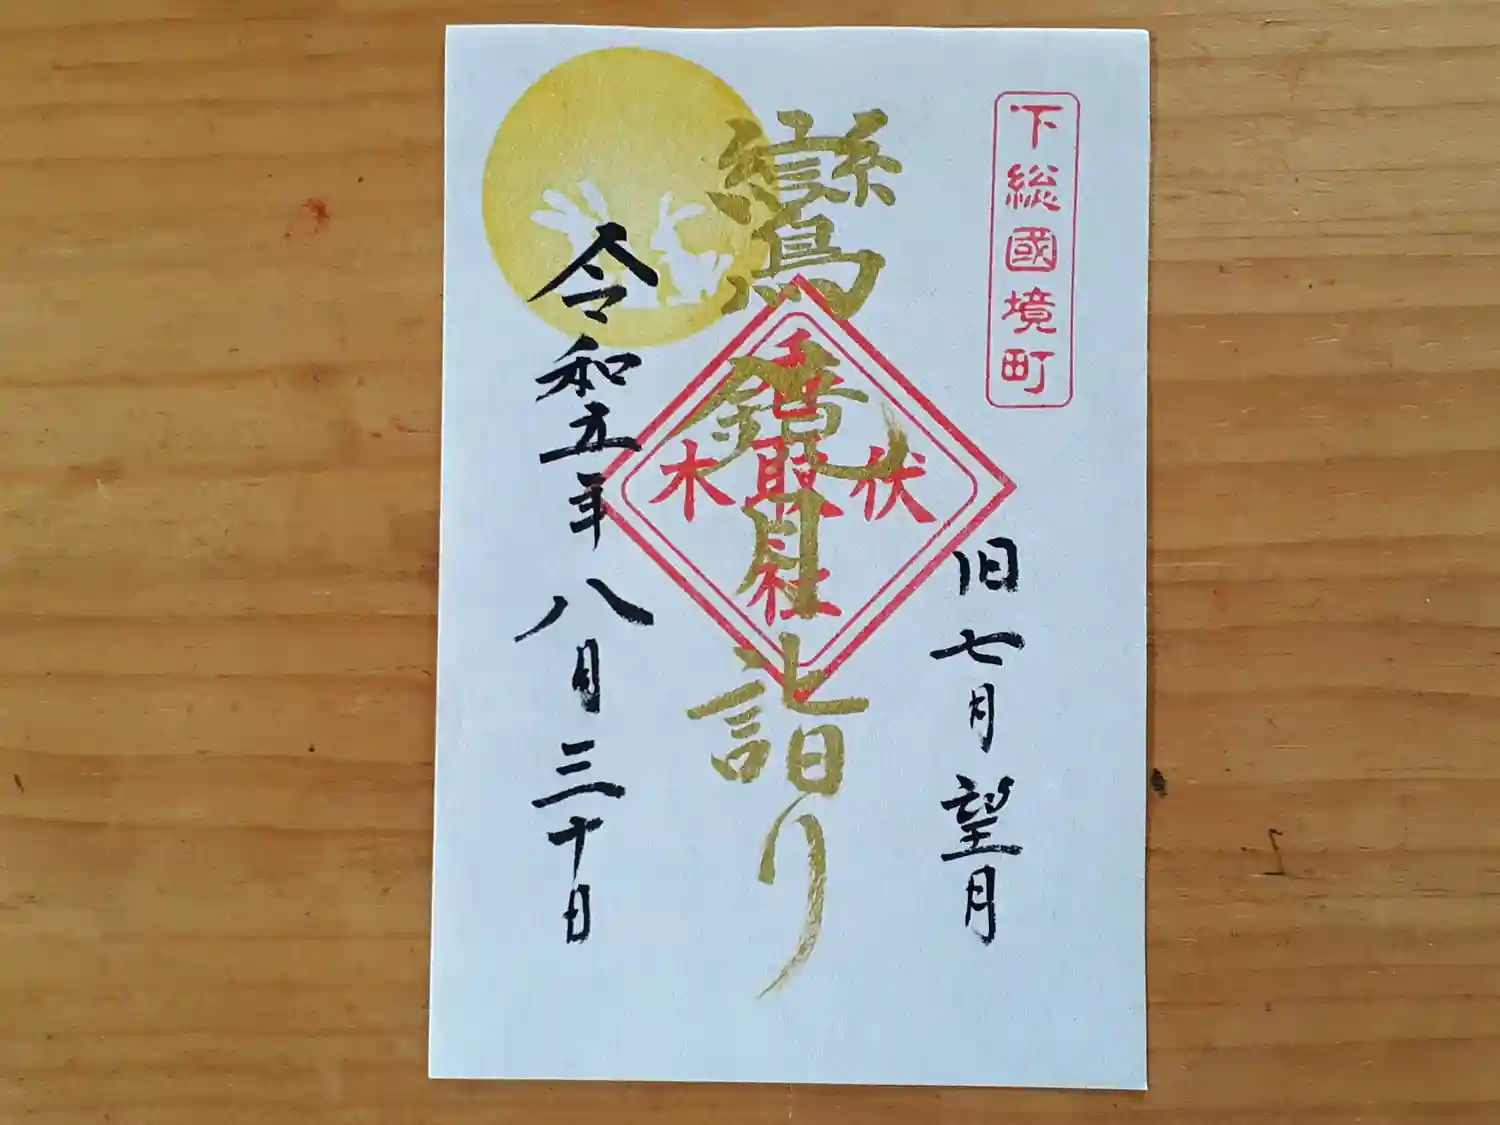 下総國境町
旧七月望月
鸞鏡月詣り
伏木
香取社
令和五年八月三十日